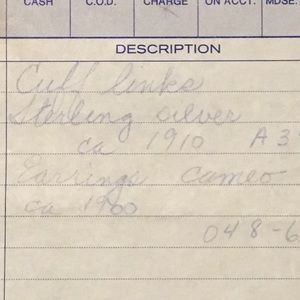 CASH C.O.D. CHARGE ON ACCT. MDSE.
DESCRIPTION
Cuff links
Sterling silver
ca 1910 A3
Earrings cameo
ca 1900
048-6